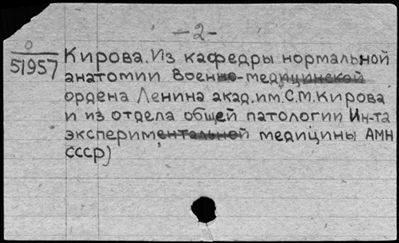 -2-
0
51957
Кирова. Из кафедры нормальной
анатомии Военно-медицинской
ордена Ленина акад. им. С.М. Кирова
и из отдела общей патологии Ин-та
экспериментальной медицины АМН
СССР)